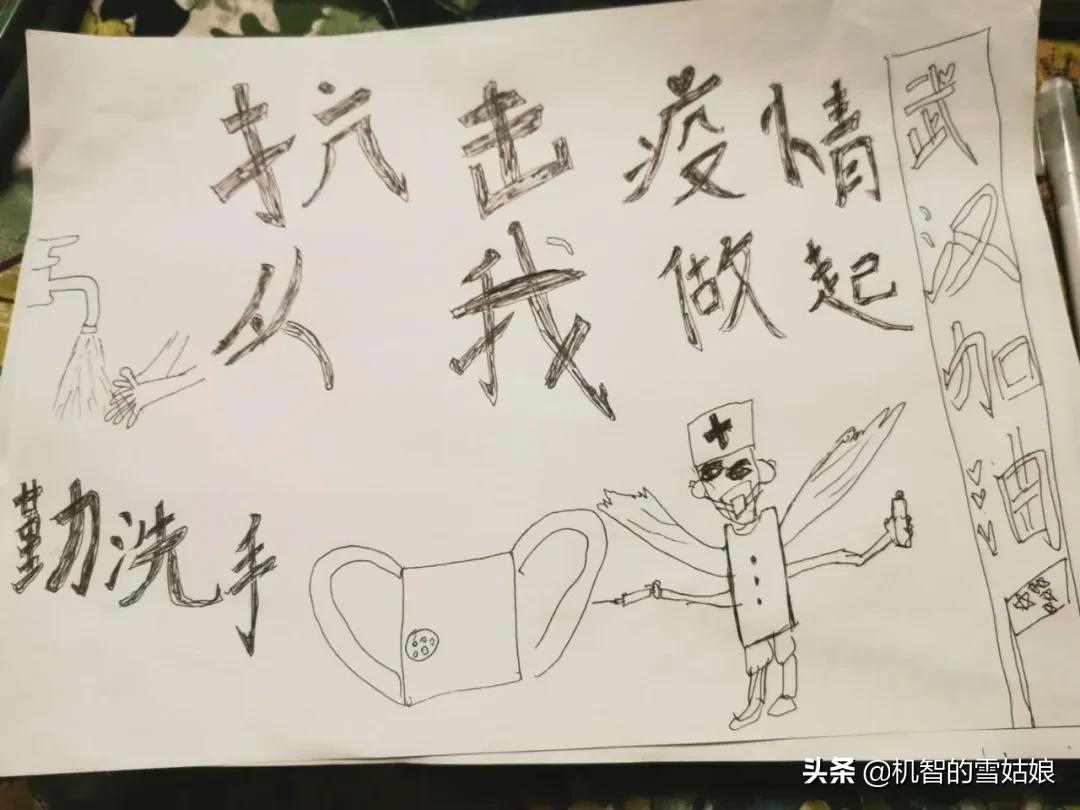 抗击疫情
从我做起
武汉加油
勤洗手
头条 @机智的雪姑娘